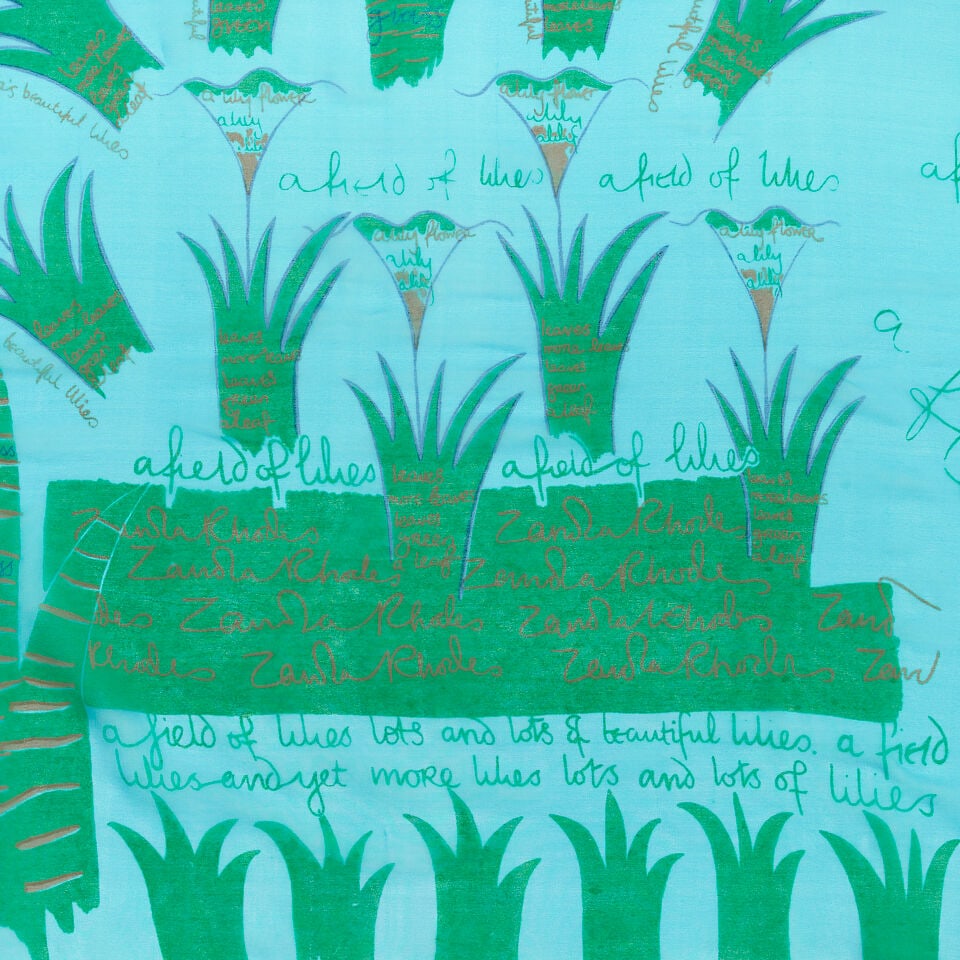 leaves
green
leaves
leaves
more leaves
leaves
green
beautiful lilies
beautiful lilies
a lily flower
a lily
a lily
a lily flower
a lily
a lily
a field of lilies
a field of lilies
a lily flower
a lily
a lily
a lily flower
a lily
a lily
leaves
more leaves
leaves
green
a leaf
leaves
more leaves
leaves
green
a leaf
beautiful lilies
a field of lilies
a field of lilies
leaves
more leaves
leaves
green
a leaf
leaves
more leaves
leaves
green
a leaf
Zandra Rhodes Zandra Rhodes
Zandra Rhodes Zandra Rhodes
des Zandra Rhodes Zandra Rhodes Zand
Rhodes Zandra Rhodes Zandra Rhodes Zand
a field of lilies lots and lots of beautiful lilies. a field
lilies and yet more lilies lots and lots of lilies